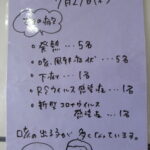 9月21日(木)
今日の病気
・発熱…5名
・咳・風邪症状…5名
・下痢…1名
・RSウイルス感染症…1名
・新型コロナウイルス
感染症…1名
咳の出る子が多くなっています。